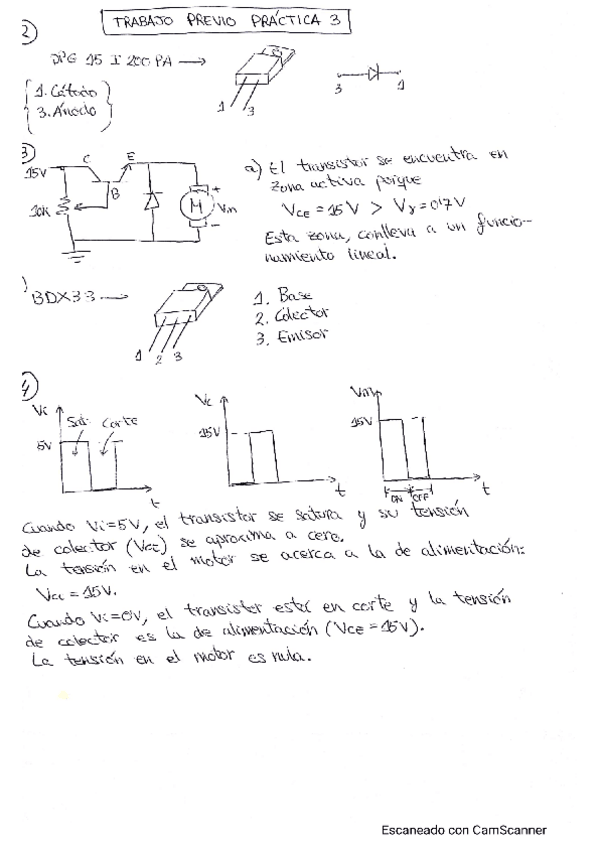 TRABAJO PREVIO PRÁCTICA 3
2)
DPG 15 I 200 PA →
1. Cátodo
3. Ánodo
1 3
3 1
3)
15V C E
B
10K M + Vm -
a) El transistor se encuentra en
zona activa porque
Vce = 15V > Vγ = 0'7V
Esta zona, conlleva a un funcio-
namiento lineal.
)
BDX33 →
1 2 3
1. Base
2. Colector
3. Emisor
4)
Vi Sat. Corte
5V
t
Vc
15V
t
Vm
15V
ON OFF t
Cuando Vi=5V, el transistor se satura y su tensión
de colector (Vce) se aproxima a cero.
La tensión en el motor se acerca a la de alimentación:
= 15V.
Cuando Vi=0V, el transistor está en corte y la tensión
de colector es la de alimentación (VCE = 15V).
La tensión en el motor es nula.
Escaneado con CamScanner